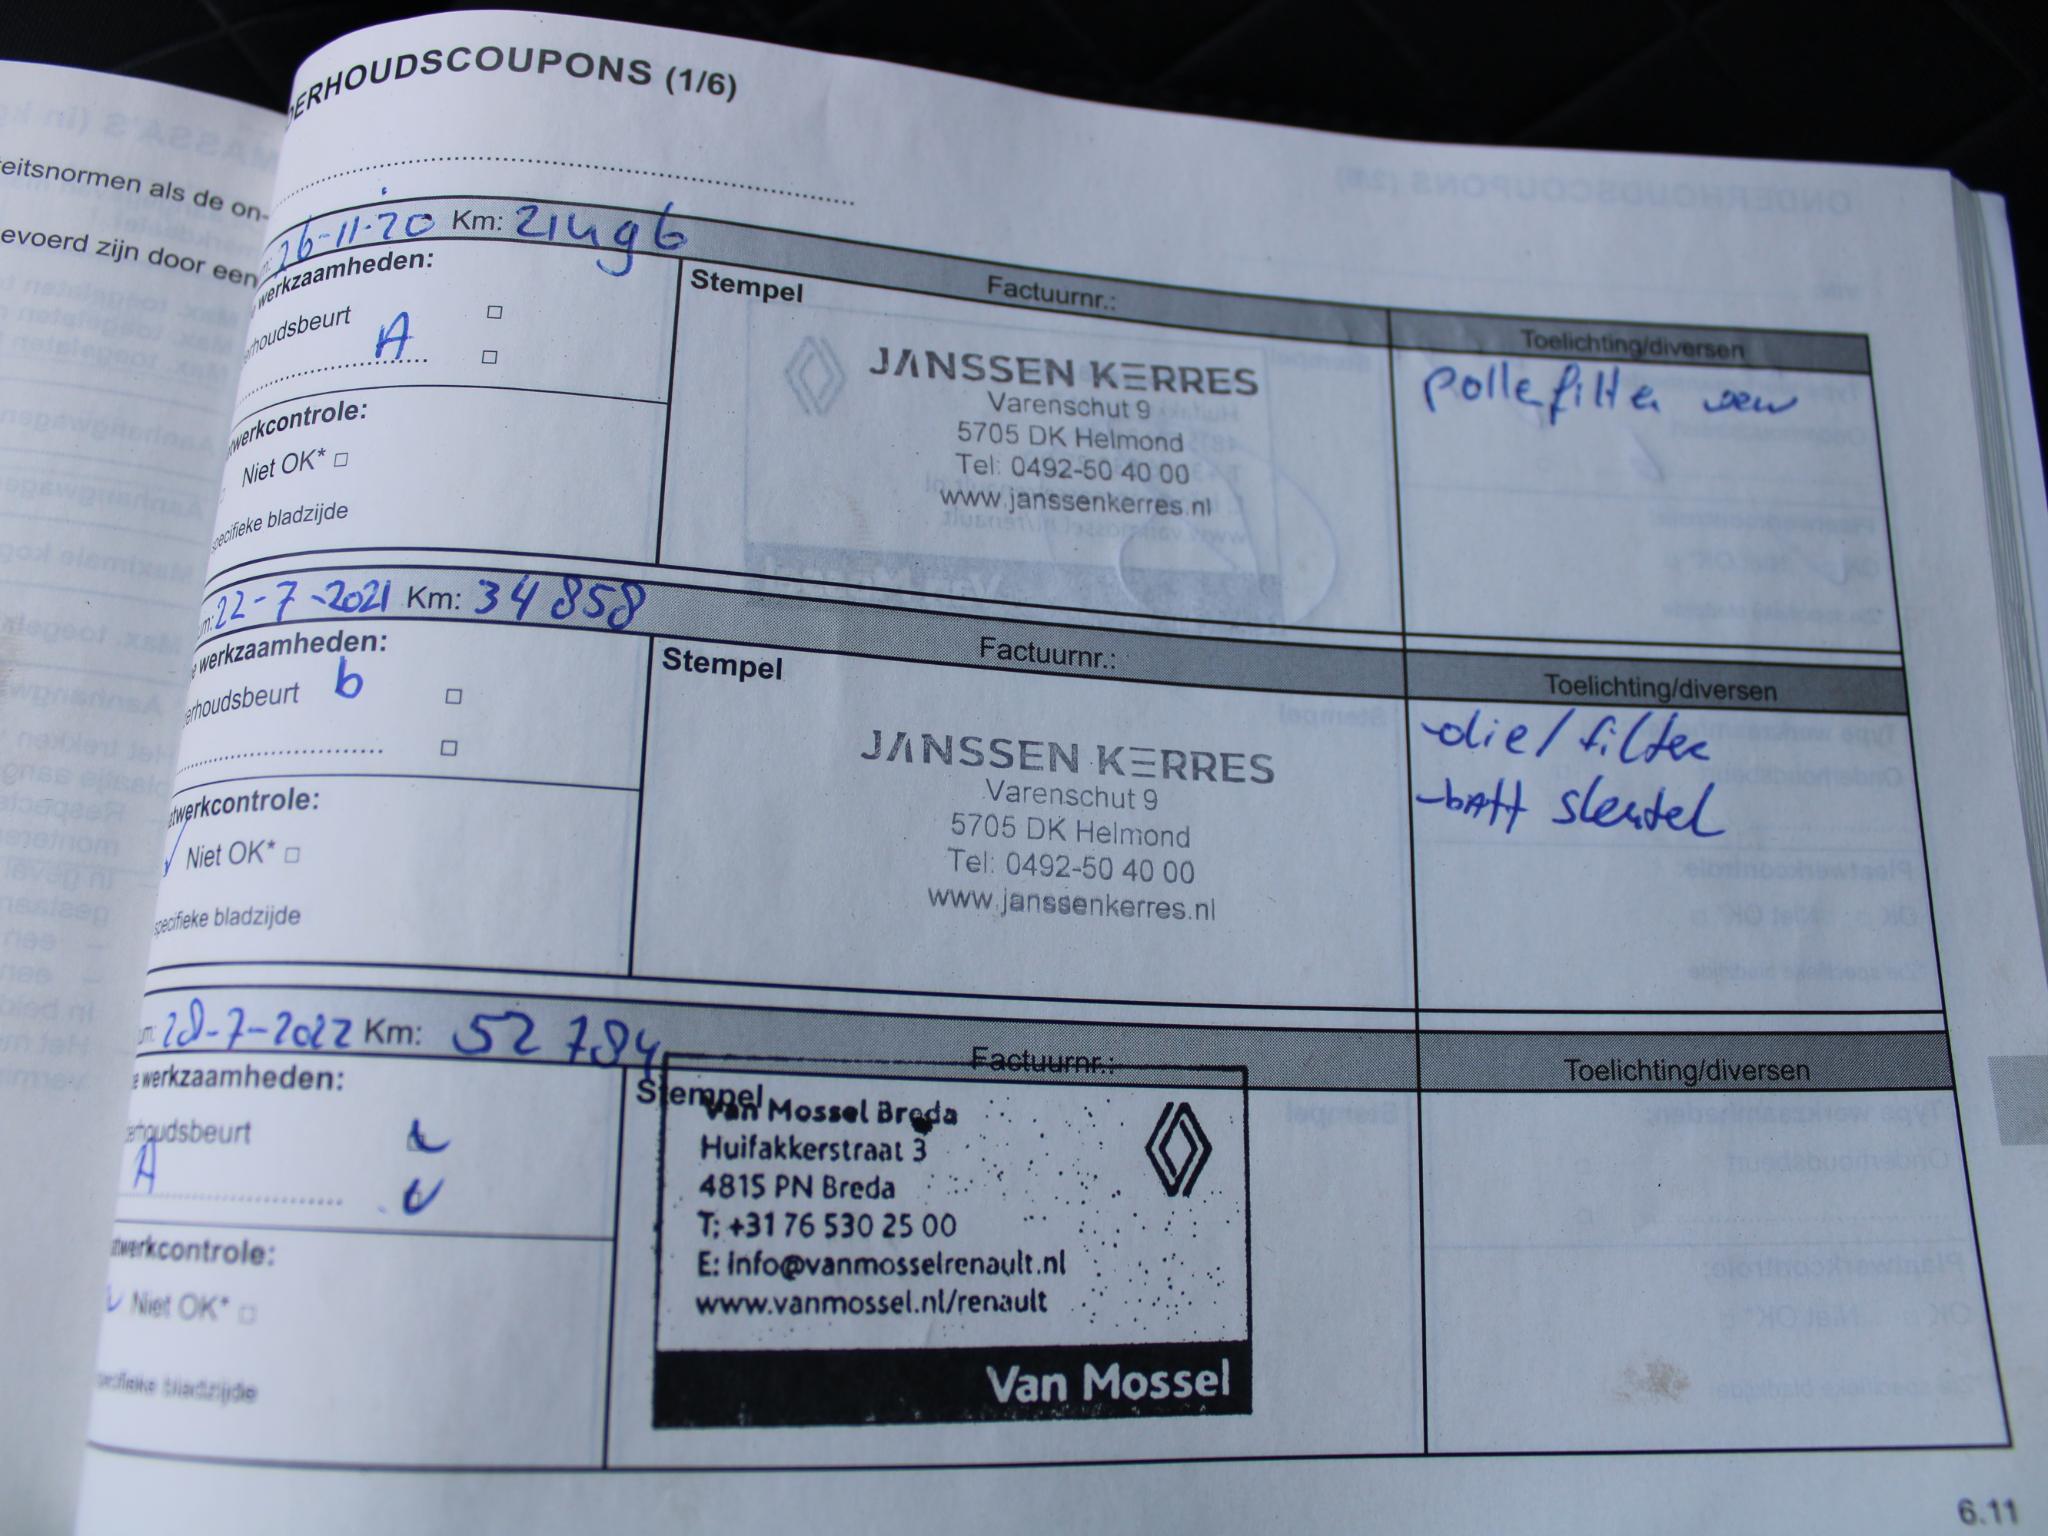 eitsnormen als de on-
evoerd zijn door een
DERHOUDSCOUPONS (1/6)
26-11-20 Km: 21496 Factuurnr.: Toelichting/diversen
werkzaamheden:
erhoudsbeurt
A
werkcontrole:
Niet OK*
specifieke bladzijde
Stempel
JANSSEN KERRES
Varenschut 9
5705 DK Helmond
Tel: 0492-50 40 00
www.janssenkerres.nl
pollefilter
um: 22-7-2021 Km: 34858 Factuurnr.: Toelichting/diversen
e werkzaamheden:
erhoudsbeurt b
atwerkcontrole:
Niet OK*
specifieke bladzijde
Stempel
JANSSEN KERRES
Varenschut 9
5705 DK Helmond
Tel: 0492-50 40 00
www.janssenkerres.nl
-olie/filter
-batt sleutel
um: 28-7-2022 Km: 52 784 Factuurnr.: Toelichting/diversen
e werkzaamheden:
erhoudsbeurt
A
atwerkcontrole:
Niet OK*
specifieke bladzijde
Stempel
Van Mossel Breda
Huifakkerstraat 3
4815 PN Breda
T: +31 76 530 25 00
E: info@vanmosselrenault.nl
www.vanmossel.nl/renault
Van Mossel
6.11